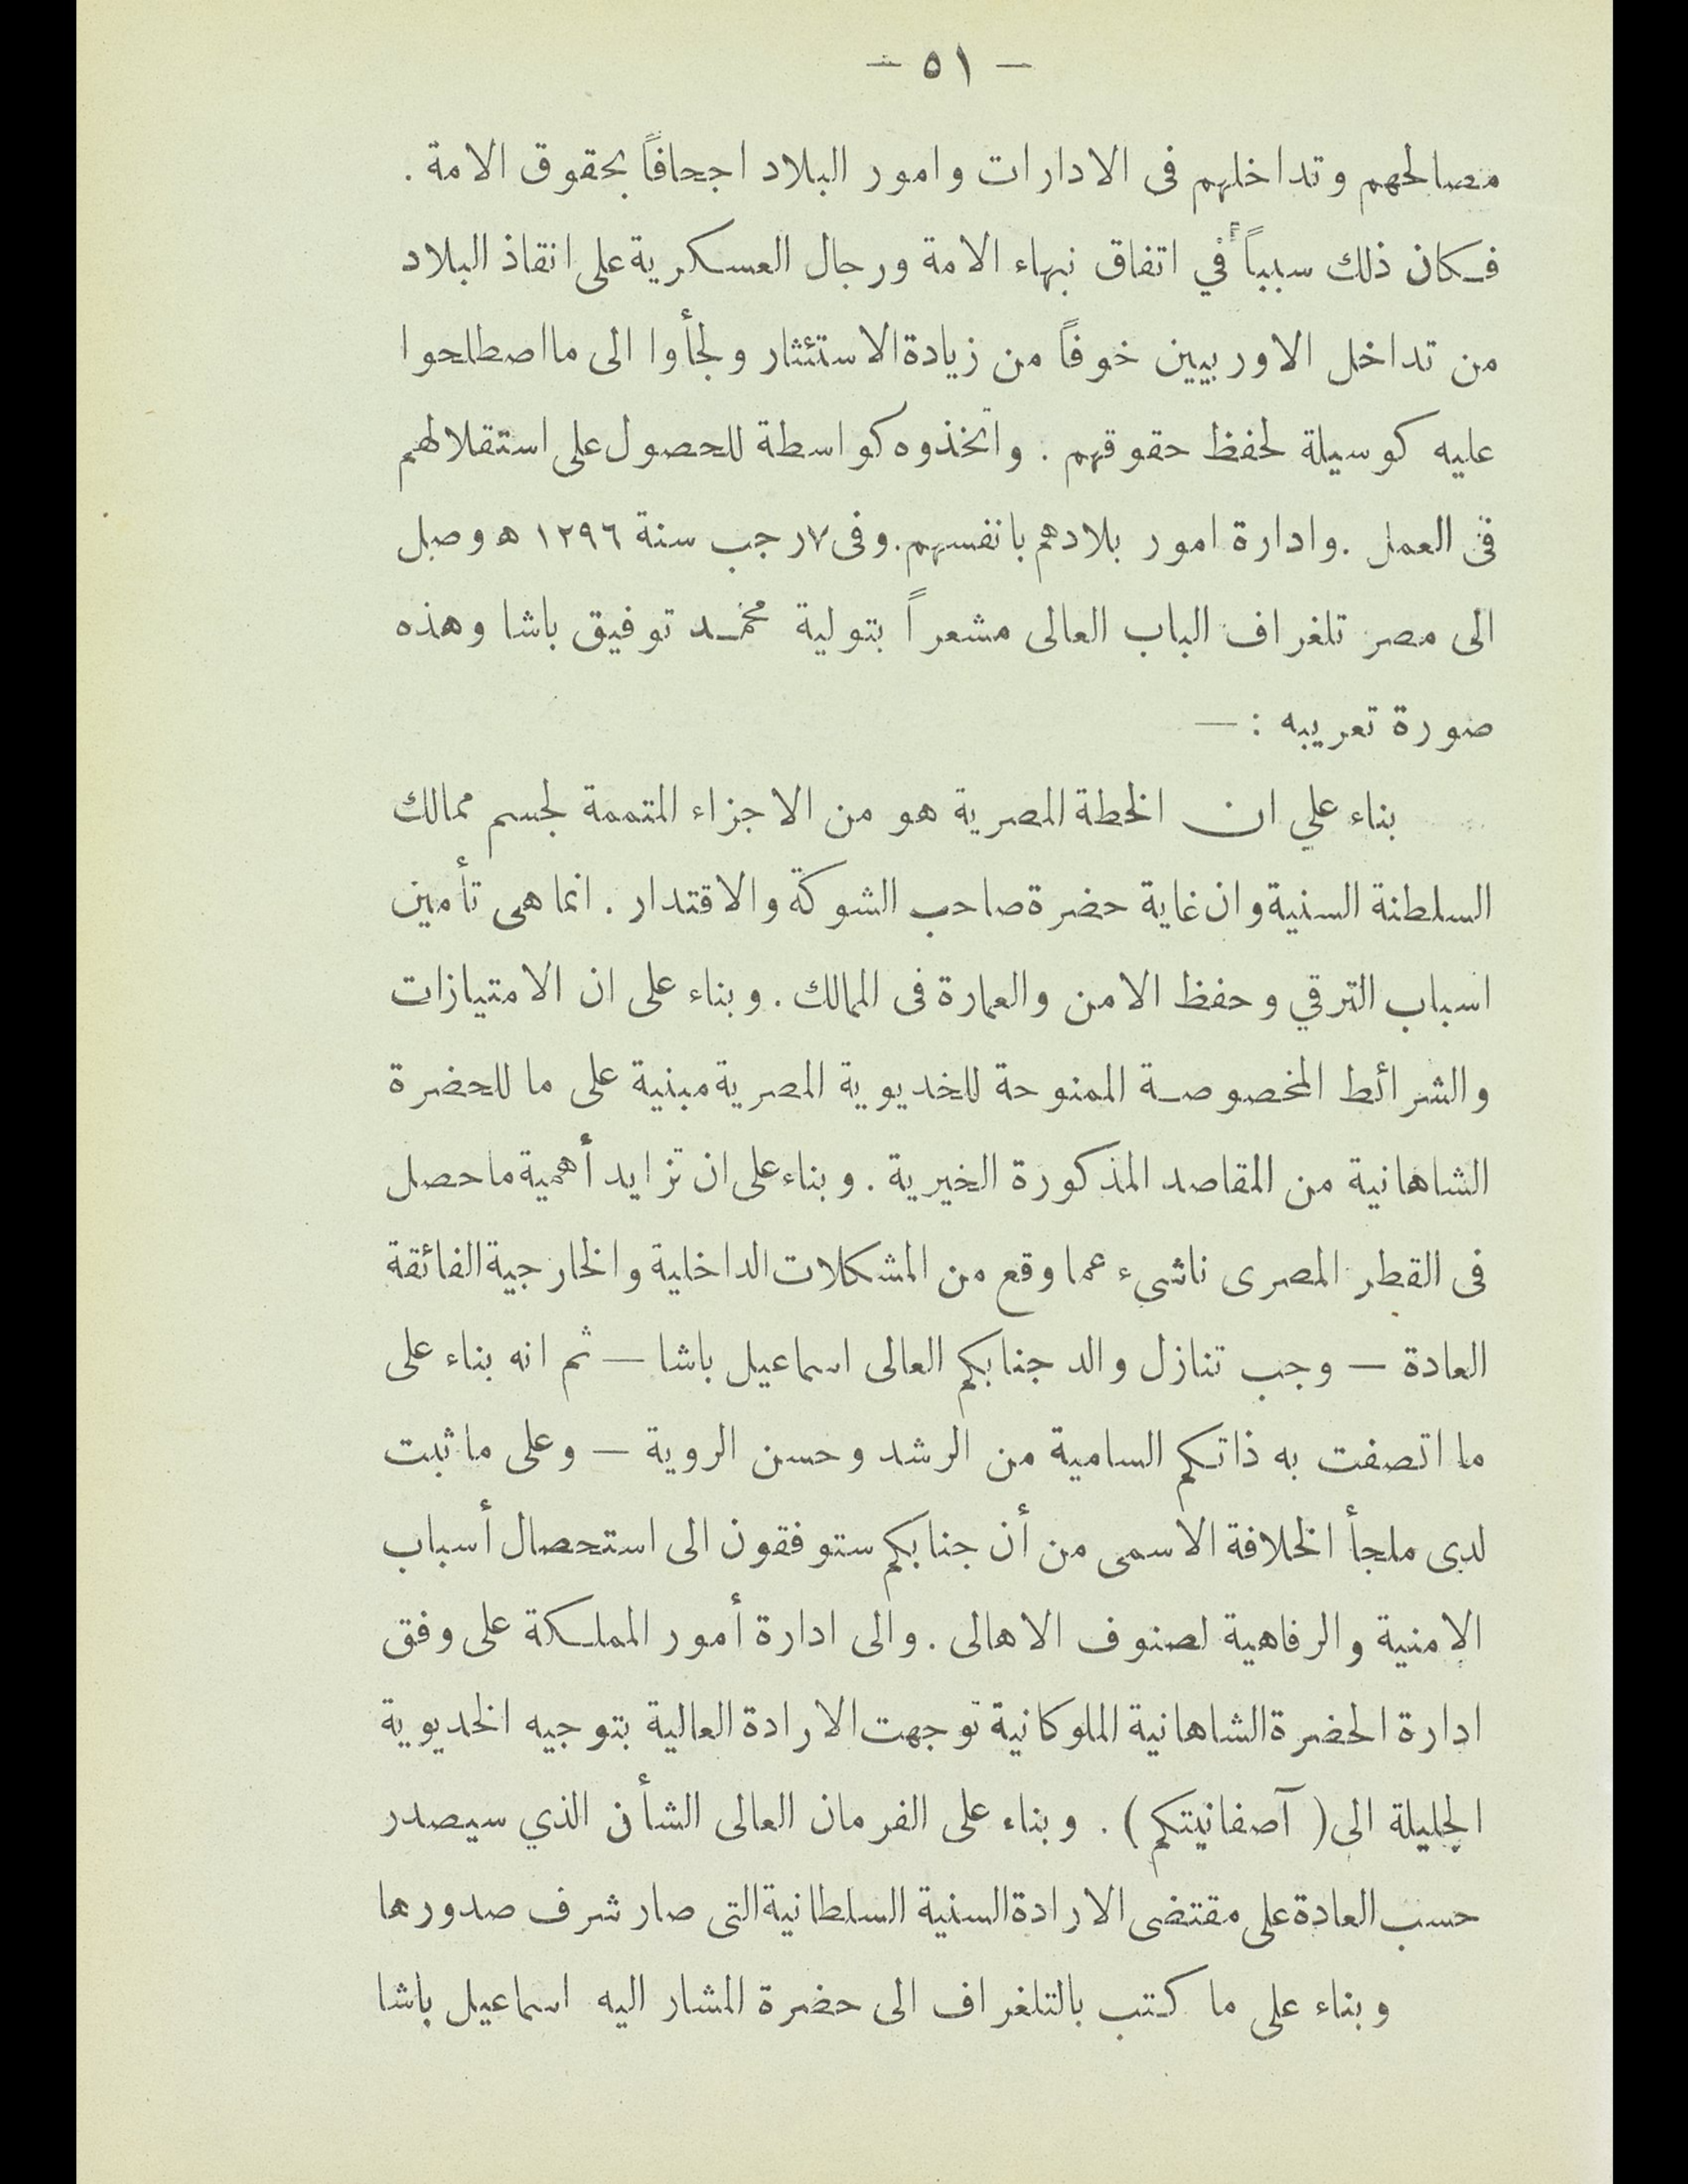 — ٥١ —
مصالحهم وتداخلهم فى الادارات وامور البلاد اجحافاً بحقوق الامة .
فكان ذلك سبباً في اتفاق نبهاء الامة ورجال العسكرية على انقاذ البلاد
من تداخل الاوربيين خوفاً من زيادة الاستئثار ولجأوا الى ما اصطلحوا
عليه كوسيلة لحفظ حقوقهم . واتخذوه كواسطة للحصول على استقلالهم
فى العمل . وادارة امور بلادهم بانفسهم . وفى ٧ رجب سنة ١٢٩٦ ه وصل
الى مصر تلغراف الباب العالى مشعراً بتولية محمد توفيق باشا وهذه
صورة تعريبه : —
بناء علي ان الخطة المصرية هو من الاجزاء المتممة لجسم ممالك
السلطنة السنية وان غاية حضرة صاحب الشوكة والاقتدار . انما هى تأمين
اسباب الترقي وحفظ الامن والعمارة فى الممالك . وبناء على ان الامتيازات
والشرائط المخصوصة الممنوحة للخديوية المصرية مبنية على ما للحضرة
الشاهانية من المقاصد المذكورة الخيرية . وبناء على ان تزايد أهمية ما حصل
فى القطر المصرى ناشىء عما وقع من المشكلات الداخلية والخارجية الفائقة
العادة — وجب تنازل والد جنابكم العالى اسماعيل باشا — ثم انه بناء على
ما اتصفت به ذاتكم السامية من الرشد وحسن الروية — وعلى ما ثبت
لدى ملجأ الخلافة الاسمى من أن جنابكم ستوفقون الى استحصال أسباب
الامنية والرفاهية لصنوف الاهالى . والى ادارة أمور المملكة على وفق
ادارة الحضرة الشاهانية الملوكانية توجهت الارادة العالية بتوجيه الخديوية
الجليلة الى ( آصفانيتكم ) . وبناء على الفرمان العالى الشأن الذي سيصدر
حسب العادة على مقتضى الارادة السنية السلطانية التى صار شرف صدورها
وبناء على ما كتب بالتلغراف الى حضرة المشار اليه اسماعيل باشا